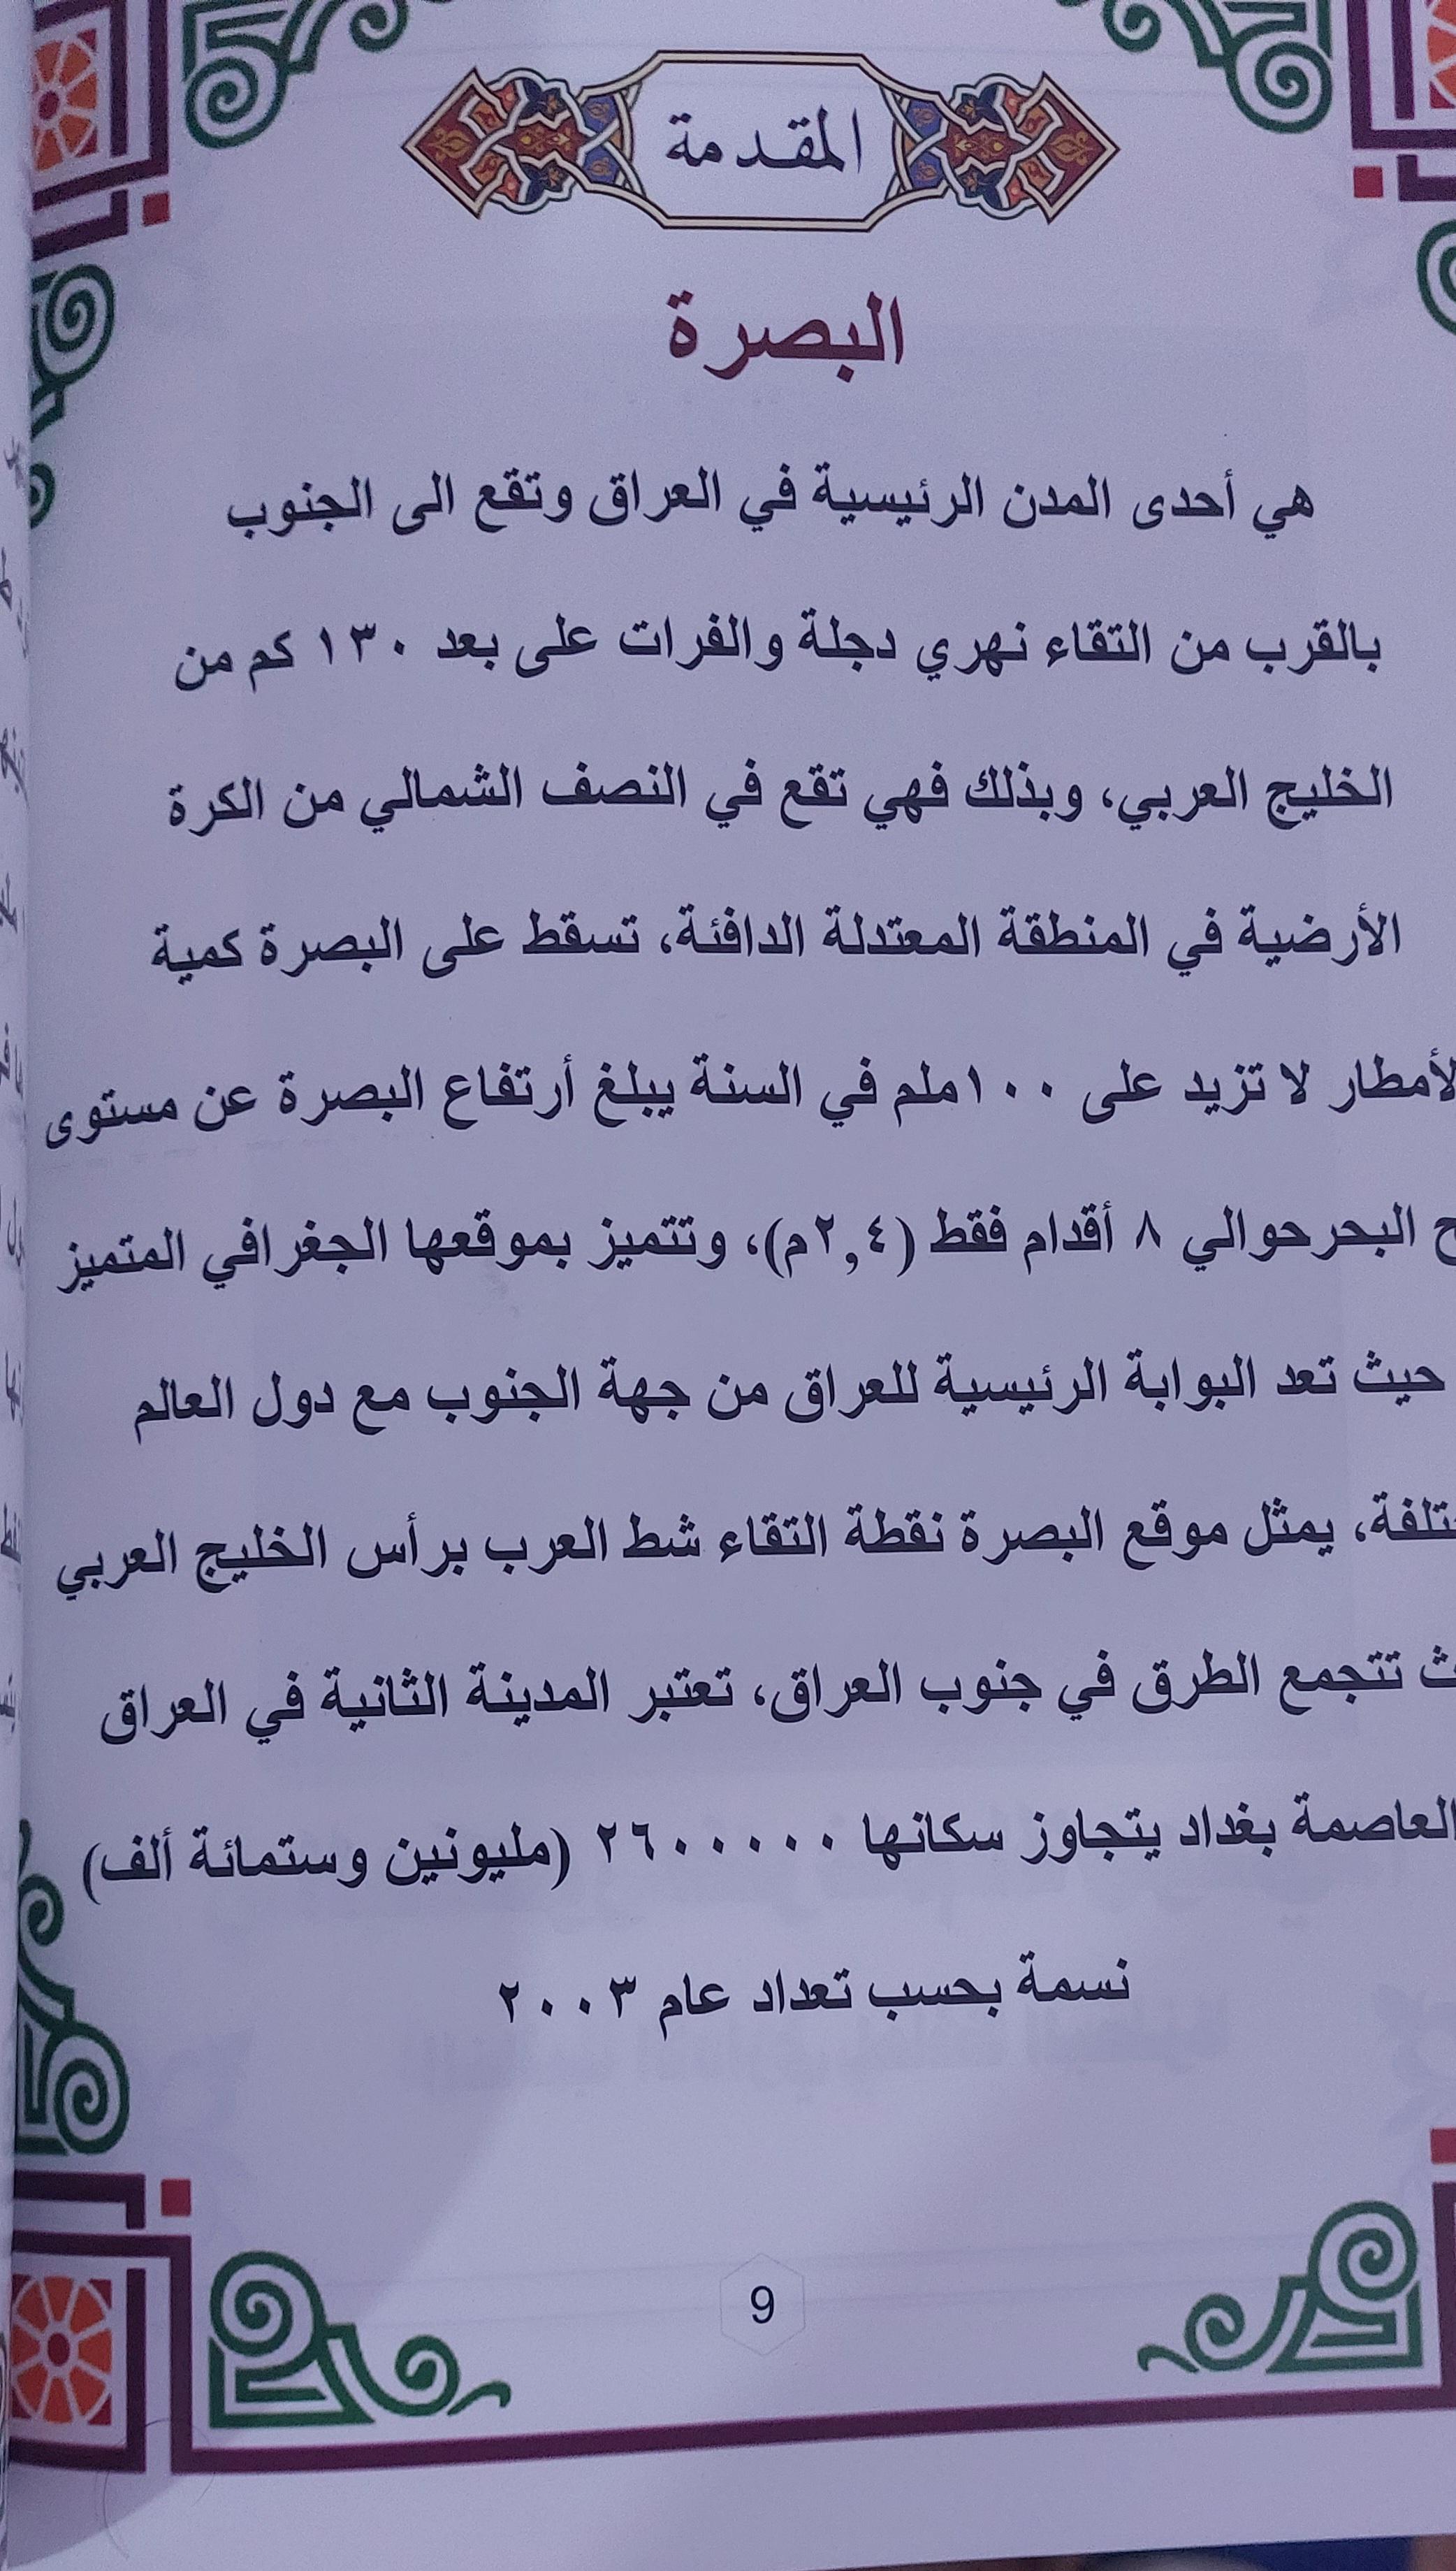 المقدمة
البصرة
هي أحدى المدن الرئيسية في العراق وتقع الى الجنوب
بالقرب من التقاء نهري دجلة والفرات على بعد ١٣٠ كم من
الخليج العربي، وبذلك فهي تقع في النصف الشمالي من الكرة
الأرضية في المنطقة المعتدلة الدافئة، تسقط على البصرة كمية
لأمطار لا تزيد على ١٠٠ملم في السنة يبلغ أرتفاع البصرة عن مستوى
ح البحرحوالي ٨ أقدام فقط (٢,٤م)، وتتميز بموقعها الجغرافي المتميز
حيث تعد البوابة الرئيسية للعراق من جهة الجنوب مع دول العالم
تلفة، يمثل موقع البصرة نقطة التقاء شط العرب برأس الخليج العربي
ث تتجمع الطرق في جنوب العراق، تعتبر المدينة الثانية في العراق
العاصمة بغداد يتجاوز سكانها ٢٦٠٠٠٠٠ (مليونين وستمائة ألف)
نسمة بحسب تعداد عام ٢٠٠٣
9